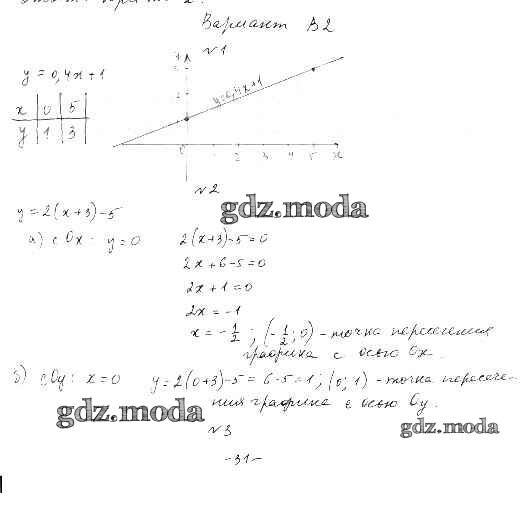 Вариант В2
№1
y = 0,4x + 1
x 0 5
y 1 3
y=0,4x+1
0 1 2 3 4 5 x
№2
gdz.moda
y = 2(x+3) - 5
а) с Ox: y = 0 2(x+3)-5=0
2x+6-5=0
2x+1=0
2x = -1
x = -1/2 ; (-1/2; 0) - точка пересечения
графика с осью Ox.
б) с Oy: x = 0 y = 2(0+3)-5 = 6-5=1; (0; 1) - точка пересече-
ния графика с осью Oy.
gdz.moda
gdz.moda
№3
-31-